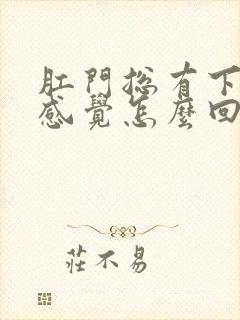 肛門总有下
感覺怎麼回
莊不易